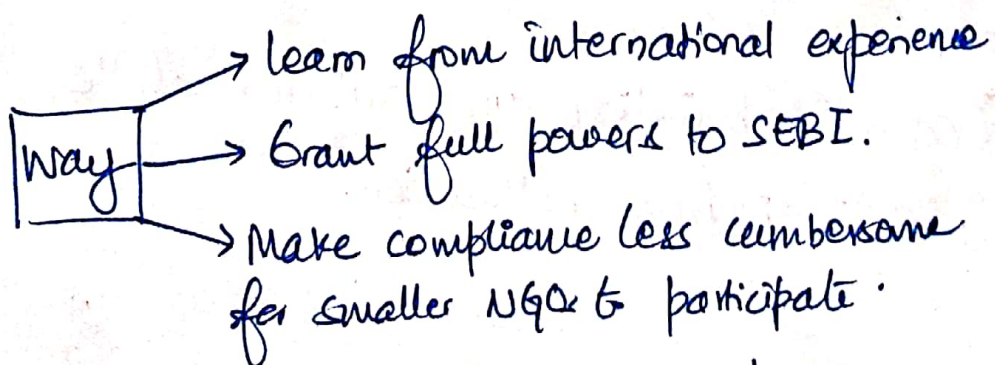 learn from international experience
Way
Grant full powers to SEBI.
Make compliance less cumbersome
for smaller NGOs to participate.